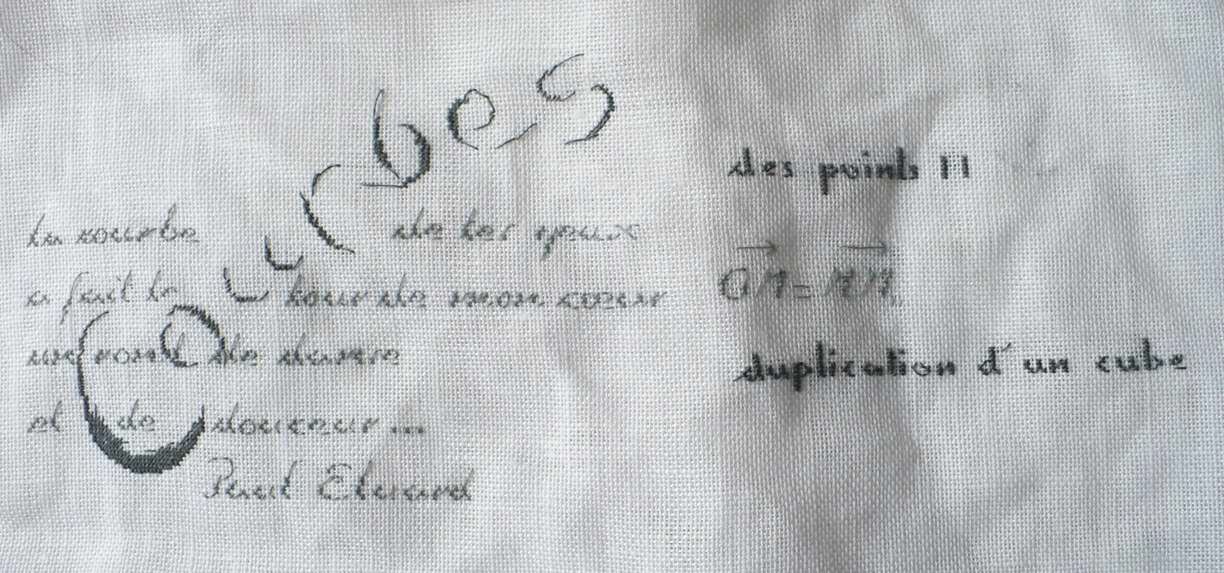 Courbes
La courbe de tes yeux
a fait le tour de mon cœur
un rond de danse
et de douceur...
Paul Eluard
des points M
OM =
duplication d'un cube